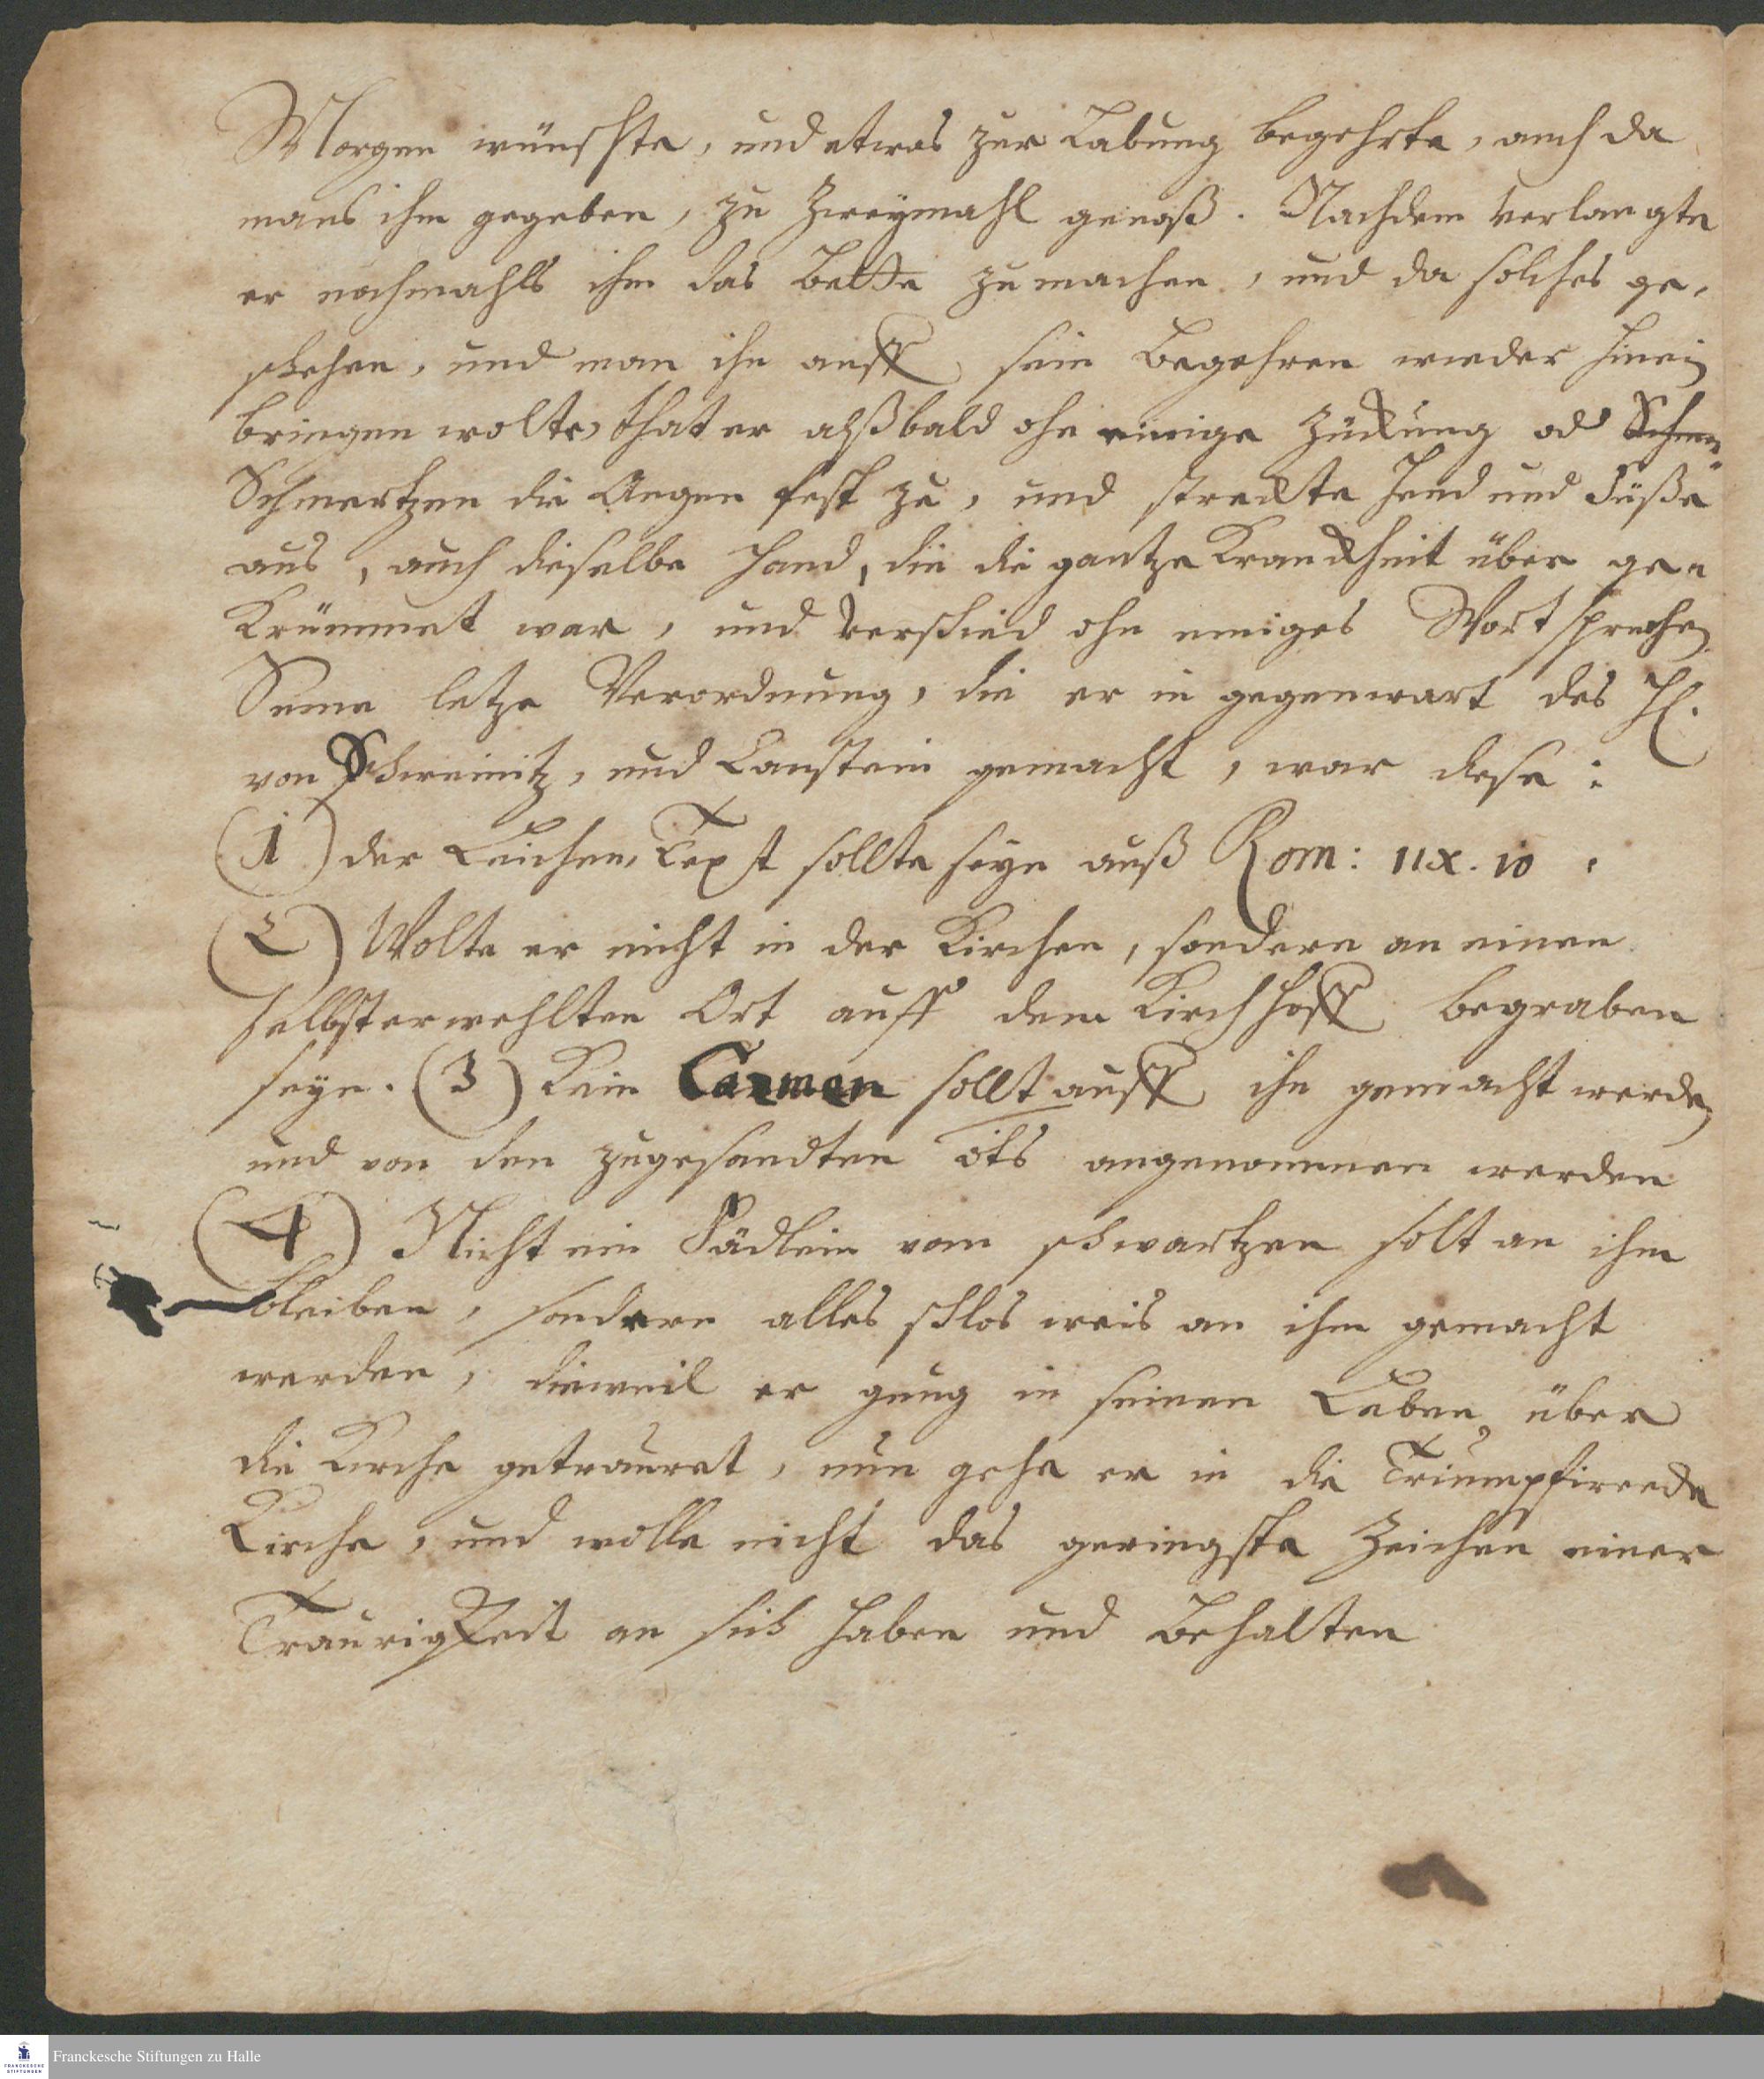 Morgen wünschte, und etwas zur Labung begehrte, auch da
mans ihm gegeben, zu Zweymahl genoß. Nachdem verlangte
er nochmahls ihm das Bette zu machen, und da solches ge-
schehen, und man ihn auff sein Begehren wieder hinein
bringen wolte, that er alßbald ohn einige Zückung od Schm
Schmertzen die Augen fest zu, und streckte Händ und Füße
aus, auch dieselbe Hand, die die gantze Kranckheit über ge-
Krümmet war, und verschied ohn einiges Wort sprechen
Seine letze Verordnung, die er in gegenwart des H.
von Schweinitz, und Canstein gemacht, war diese:
(1) der Leichen, Text sollte seyn auß Rom: IIX. 10.
(2) Wolte er nicht in der Kirchen, sondern an einen
selbst erwehlten Ort auff dem Kirchhoff begraben
seyn. (3) Kein Carmen sollt auff ihn gemacht werden
und von den zugesandten angenommen werden
(4) Nicht ein Fädlein vom schwartzen solt an ihm
bleiben, sondern alles schlos weis an ihm gemacht
werden, dieweil er gnug in seinen Leben über
die Kirche getrauret, nun gehe er in die Triumpfirende
Kirche, und wolle nicht das geringste Zeichen einer
Traurigkeit an sich haben und behalten
Franckesche Stiftungen zu Halle
FRANCKESCHE
STIFTUNGEN